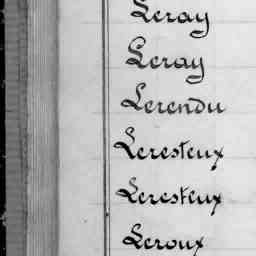 Leray
Leray
Lerendu
Leresteux
Leresteux
Leroux